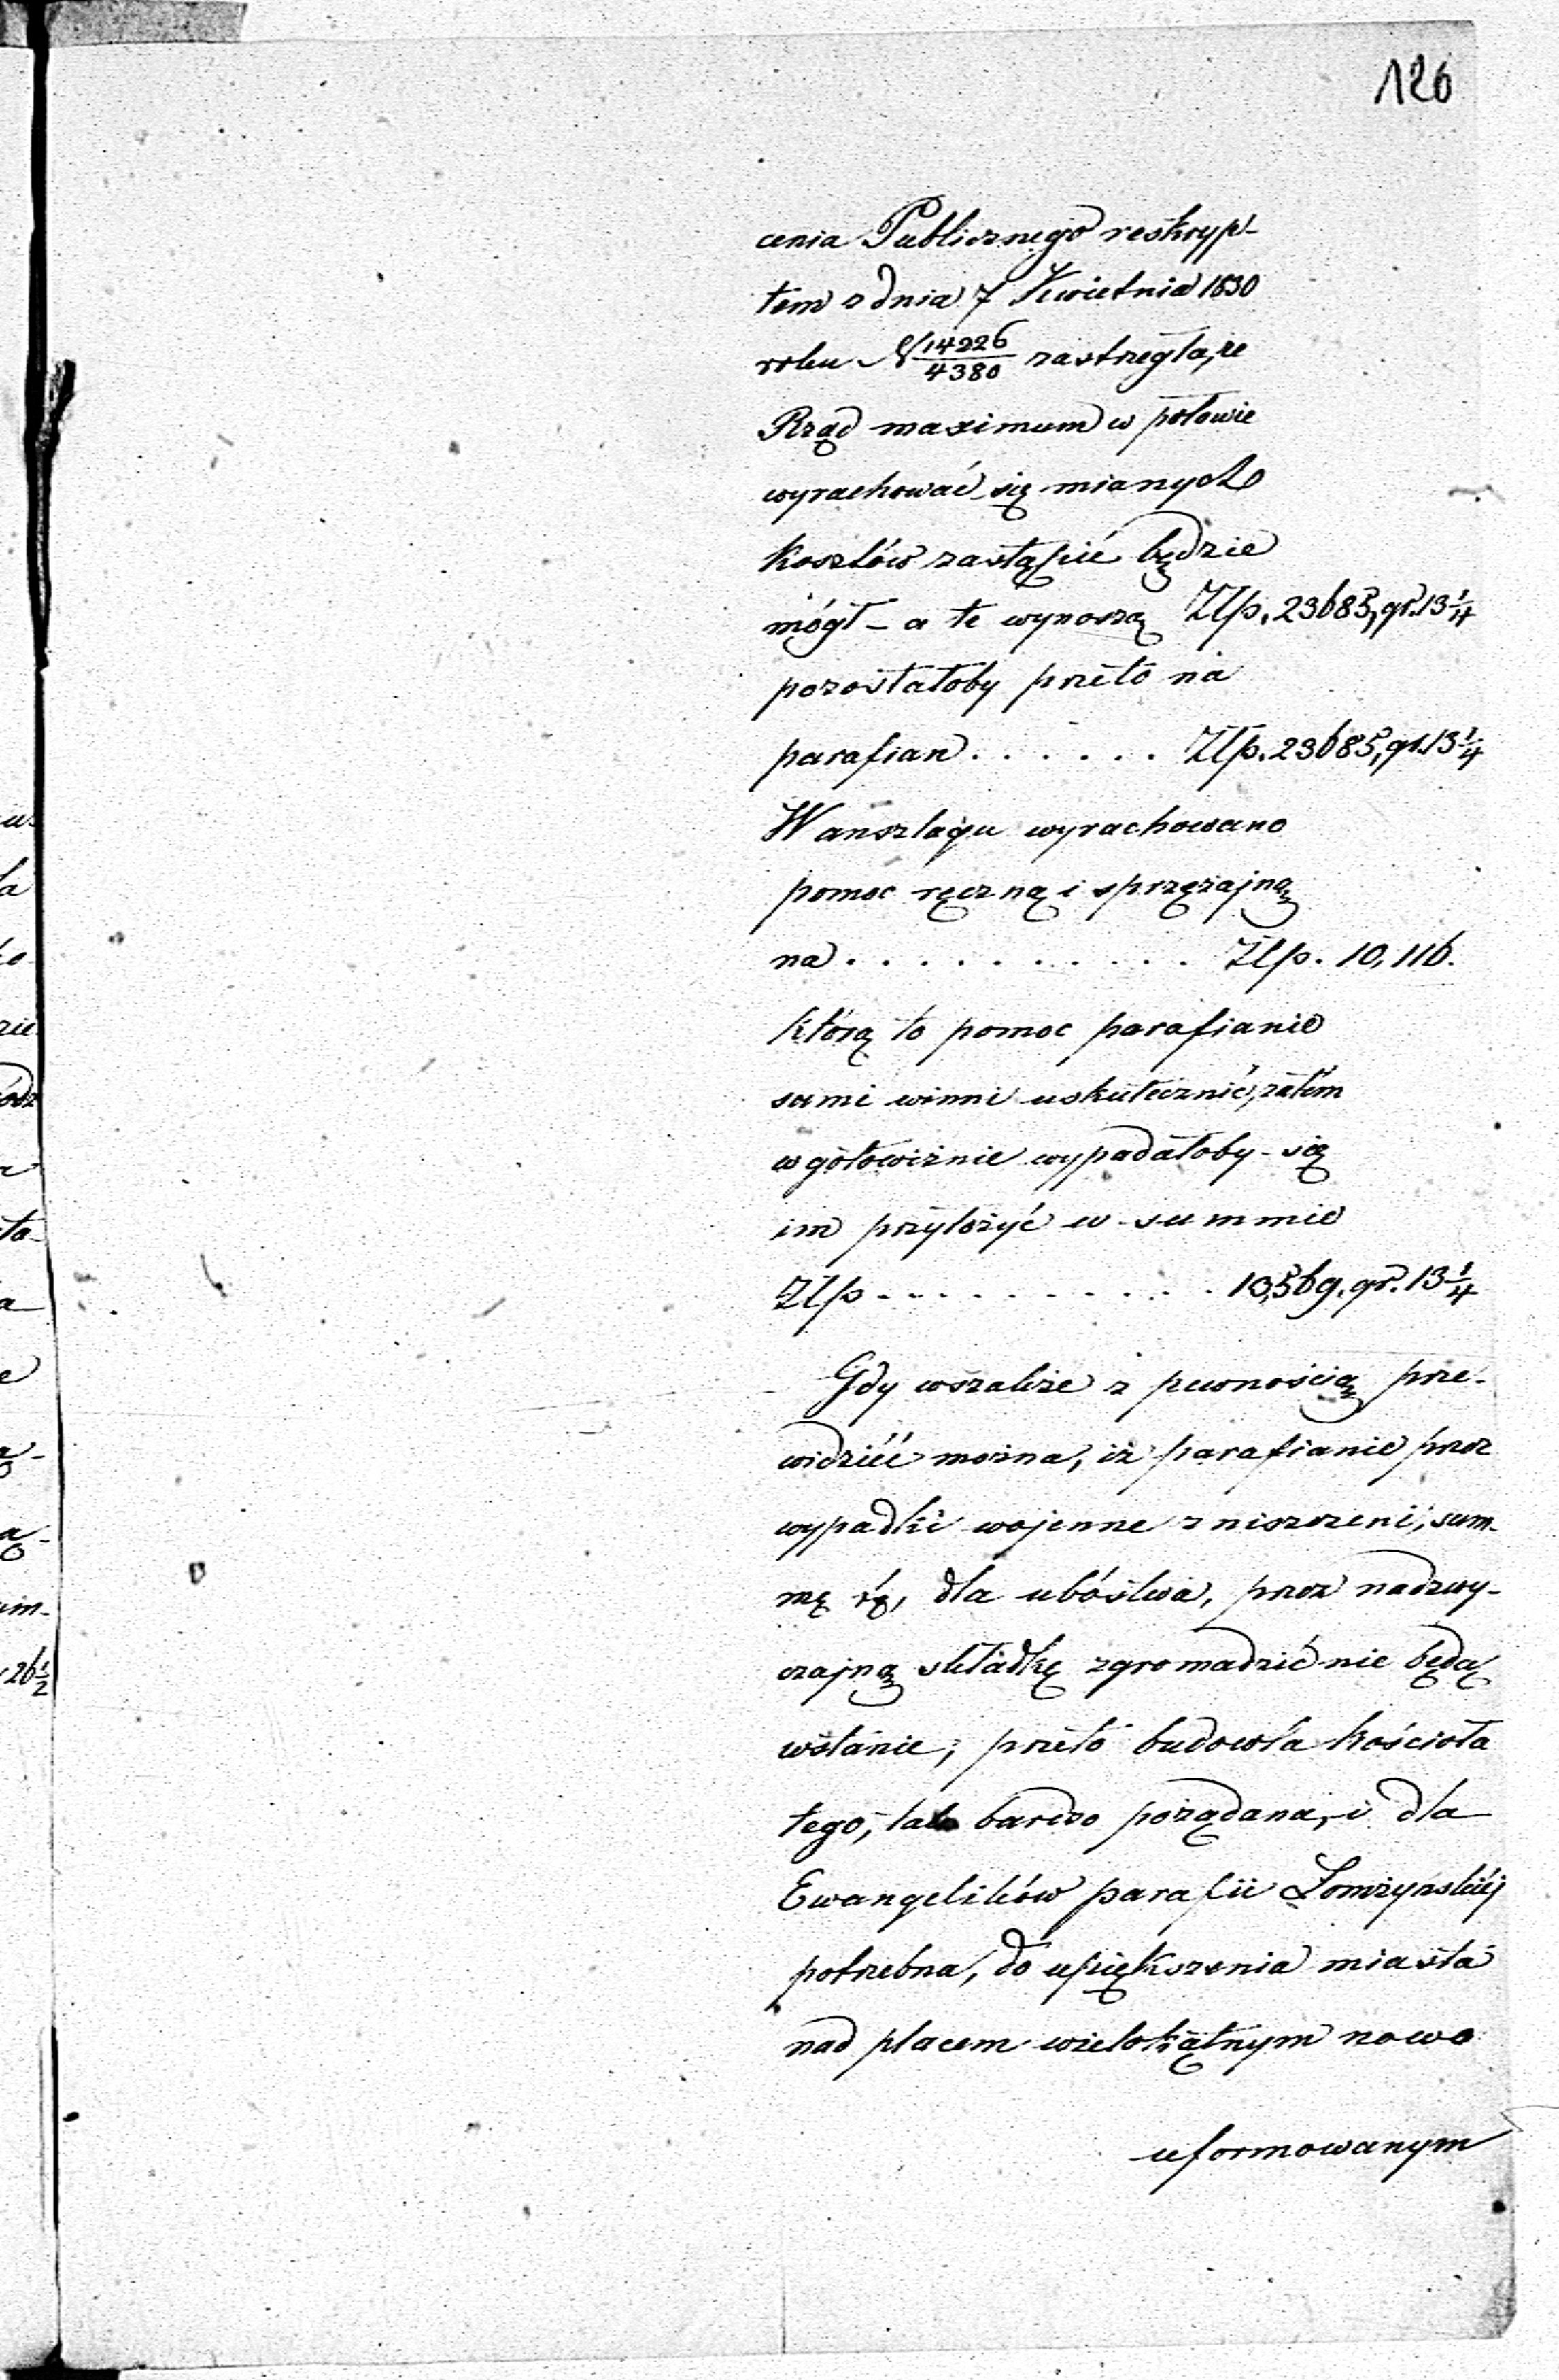 126
cenia Publicznego reskryp-
tem z dnia 7 Kwietnia 1830
roku N 14226/4380 zastrzegła, że
Rząd maximum w połowie
wyrachować się mianych
kosztów zastąpić będzie
mógł – a te wynoszą Złp. 23685, gr. 13 1/4
pozostałoby przeto na
parafian . . . . . . Złp. 23685, gr. 13 1/4
W anszlagu wyrachowano
pomoc ręczną i sprzężajną
na . . . . . . . . . . Złp. 10,116.
którą to pomoc parafianie
sami winni uskutecznić, zatém
w gotowiźnie wypadałoby się
im przyłożyć w summie
Złp . . . . . . . . . . 13,569. gr. 13 1/4
Gdy wszakże z pewnością prze-
widziéć można, iż parafianie przez
wypadki wojenne zniszczeni, sum-
mę tę, dla ubóstwa, przez nadzwy-
czajną składkę zgromadzić nie będą
wstanie; przeto budowla kościoła
tego, tak bardzo pożądana, i dla
Ewangelików parafii Łomżyńskiéj
potrzebna, do upiększenia miasta
nad placem wielokątnym nowo
uformowanym
u-
ła
ko-
zie
ódz
a
to-
a
e
ą-
ą-
um-
26 1/2